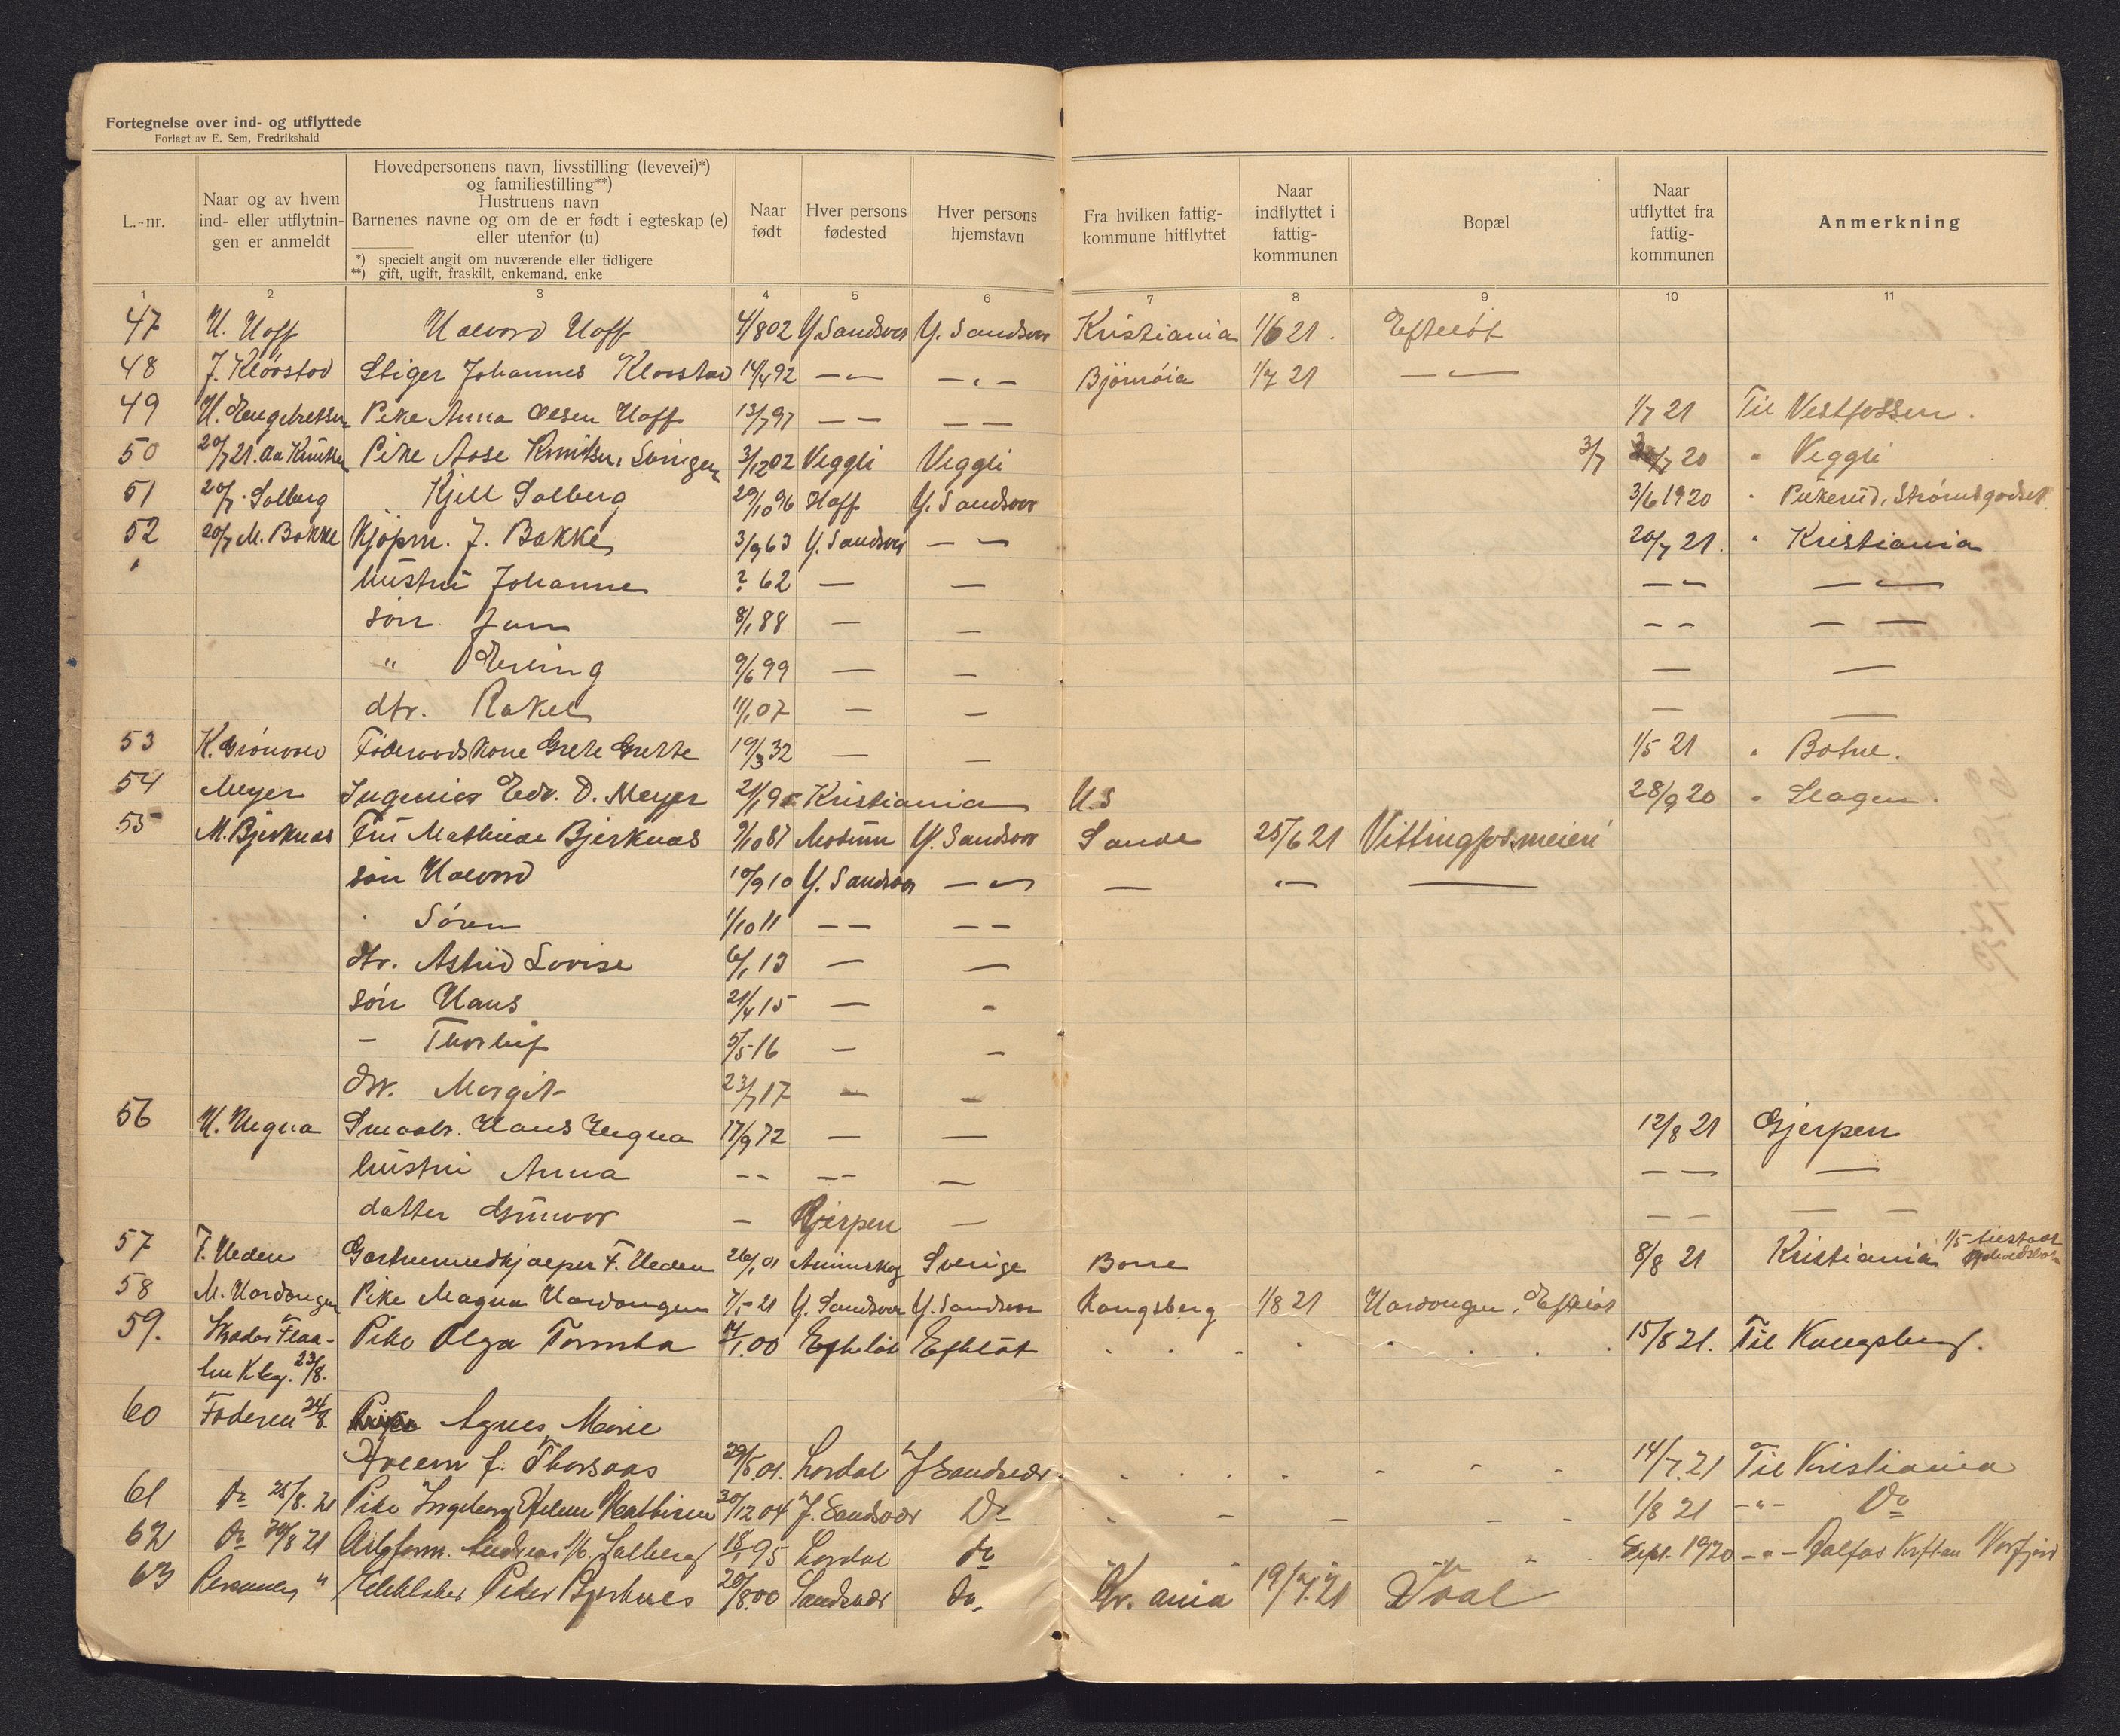 Fortegnelse over ind- og utflyttede
Forlagt av E. Sem, Fredrikshald
L.-nr.
Naar og av hvem
ind- eller utflytnin-
gen er anmeldt
Hovedpersonens navn, livsstilling (levevei)*)
og familiestilling**)
Hustruens navn
Barnenes navne og om de er født i egteskap (e)
eller utenfor (u)
*) specielt angit om nuværende eller tidligere
**) gift, ugift, fraskilt, enkemand, enke
Naar
født
Hver persons
fødested
Hver persons
hjemstavn
Fra hvilken fattig-
kommune hitflyttet
Naar
indflyttet i
fattig-
kommunen
Bopæl
Naar
utflyttet fra
fattig-
kommunen
Anmerkning
1 2 3 4 5 6 7 8 9 10 11
47 H. Hoff Halvord Hoff 4/8 02 Y. Sandsver Y. Sandsver Kristiania 1/6 21. Efteløt
48 J. Kløvstad Stiger Johannes Klovstad 14/4 92 — — Bjørnøia 1/7 21 —
49 H. Engebretsen Pike Anna Olsen Hoff 13/7 97 — — 1/7 21 Til Vestfossen.
50 20/7 21. Aa Knutsen Pike Aase Knutsen, 3/12 02 Veggli Veggli 3/7 20 " Veggli
51 20/7. Solberg Kjell Solberg 29/10 96 Hoff Y. Sandsver 3/6 1920 " Pukerud, Strømsgodset.
52 20/7 M. Bakke Kjøpm. J. Bakke 3/9 63 Y. Sandsver — 20/7 21. " Kristiania
" hustru Johanne ? 62 — — — —
søn Jan 8/1 88 — — — —
" Erling 9/6 99 — — — —
dtr. Rakel 11/1 07 — — — —
53 K. Grønvold Føderaadskone Grete Grette 19/3 32 — — 1/5 21 " Botne.
54 Meyer Ingeniør Edv. D. Meyer Kristiania U.S 28/9 20 " Slagen.
55 M. Bjerknæs Fru Mathilde Bjerknæs 9/10 87 Modum Y. Sandsver Sande 25/6 21 Vittingfosmeieri
søn Halvord 10/9 10 Y. Sandsver — — — —
" Søren 1/10 11 — —
dtr. Astrid Lovise 6/1 13 — —
søn Hans 21/4 15 — -
- Thorleif 5/5 16 — —
dtr. Margit 23/7 17 — —
56 H. Hegna Smaabr. Hans Hegna 17/9 72 — — 12/8 21 Gjerpen
hustru Anna -- -- — — —
datter Gunvor — Gjerpen — — —
57 F. Heden Gartnermedhjælper F. Heden 26/1 01 Sverige Borre 8/8 21 Kristiania
58 M. Hardangen Pike Magna Hardangen Y. Sandsver Y. Sandsver Kongsberg 1/8 21 Hardangen, Efteløt
59. Pike Olga 00 Efteløt Efteløt 15/8 21. Til Kongsberg.
23/8.
60 Faderen 24/8. Agnes Marie
f. Thorsaas 29/5 01. Lardal Y Sandsvær 14/7. 21 Til Kristiania
61 Do 25/8. 21 Pike Ingeborg Helene Mathisen 30/12 04 Y. Sandsvær Do 1/8 21 -"- Do
62 Do 30/8 21 Arbform. Andreas Solberg 18/1 95 Lardal do Sept. 1920 -"-
63 " Peder Bjerknes 20/8 00 Sandsvær do. Kr. ania 19/7. 21